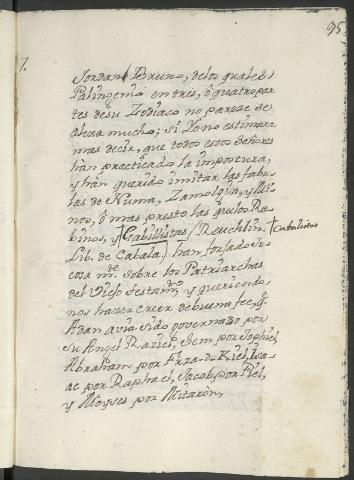 95
7.
Jordan Bruno, delos quales el
Palingenio en tres, ò quatro par
tes de su Zodiaco no parece se
alexa mucho; si Yo no estimara
mas decir, que todos estos Señores
hàn practicado la impostura,
y hàn querido imitar las fabu
las de Numa, Zamolxis, y Mi
nos, ò mas presto las que los Ra
binos, y † Gabillistas (Reuchlin. † Cabalistas
Lib. de Cabala.) han forjado
cosa mte sobre los Patriarchas
del Viejo Testamto y queriendo
nos hazer creer de buena fee, q.
Adan avia sido governado por
su Angel Raziel, Sem por Jophiel,
Abraham por Erza-d-Kiel, Isa
ac por Raphael, Jacob por Piel,
y Moyses por Mitaròn,